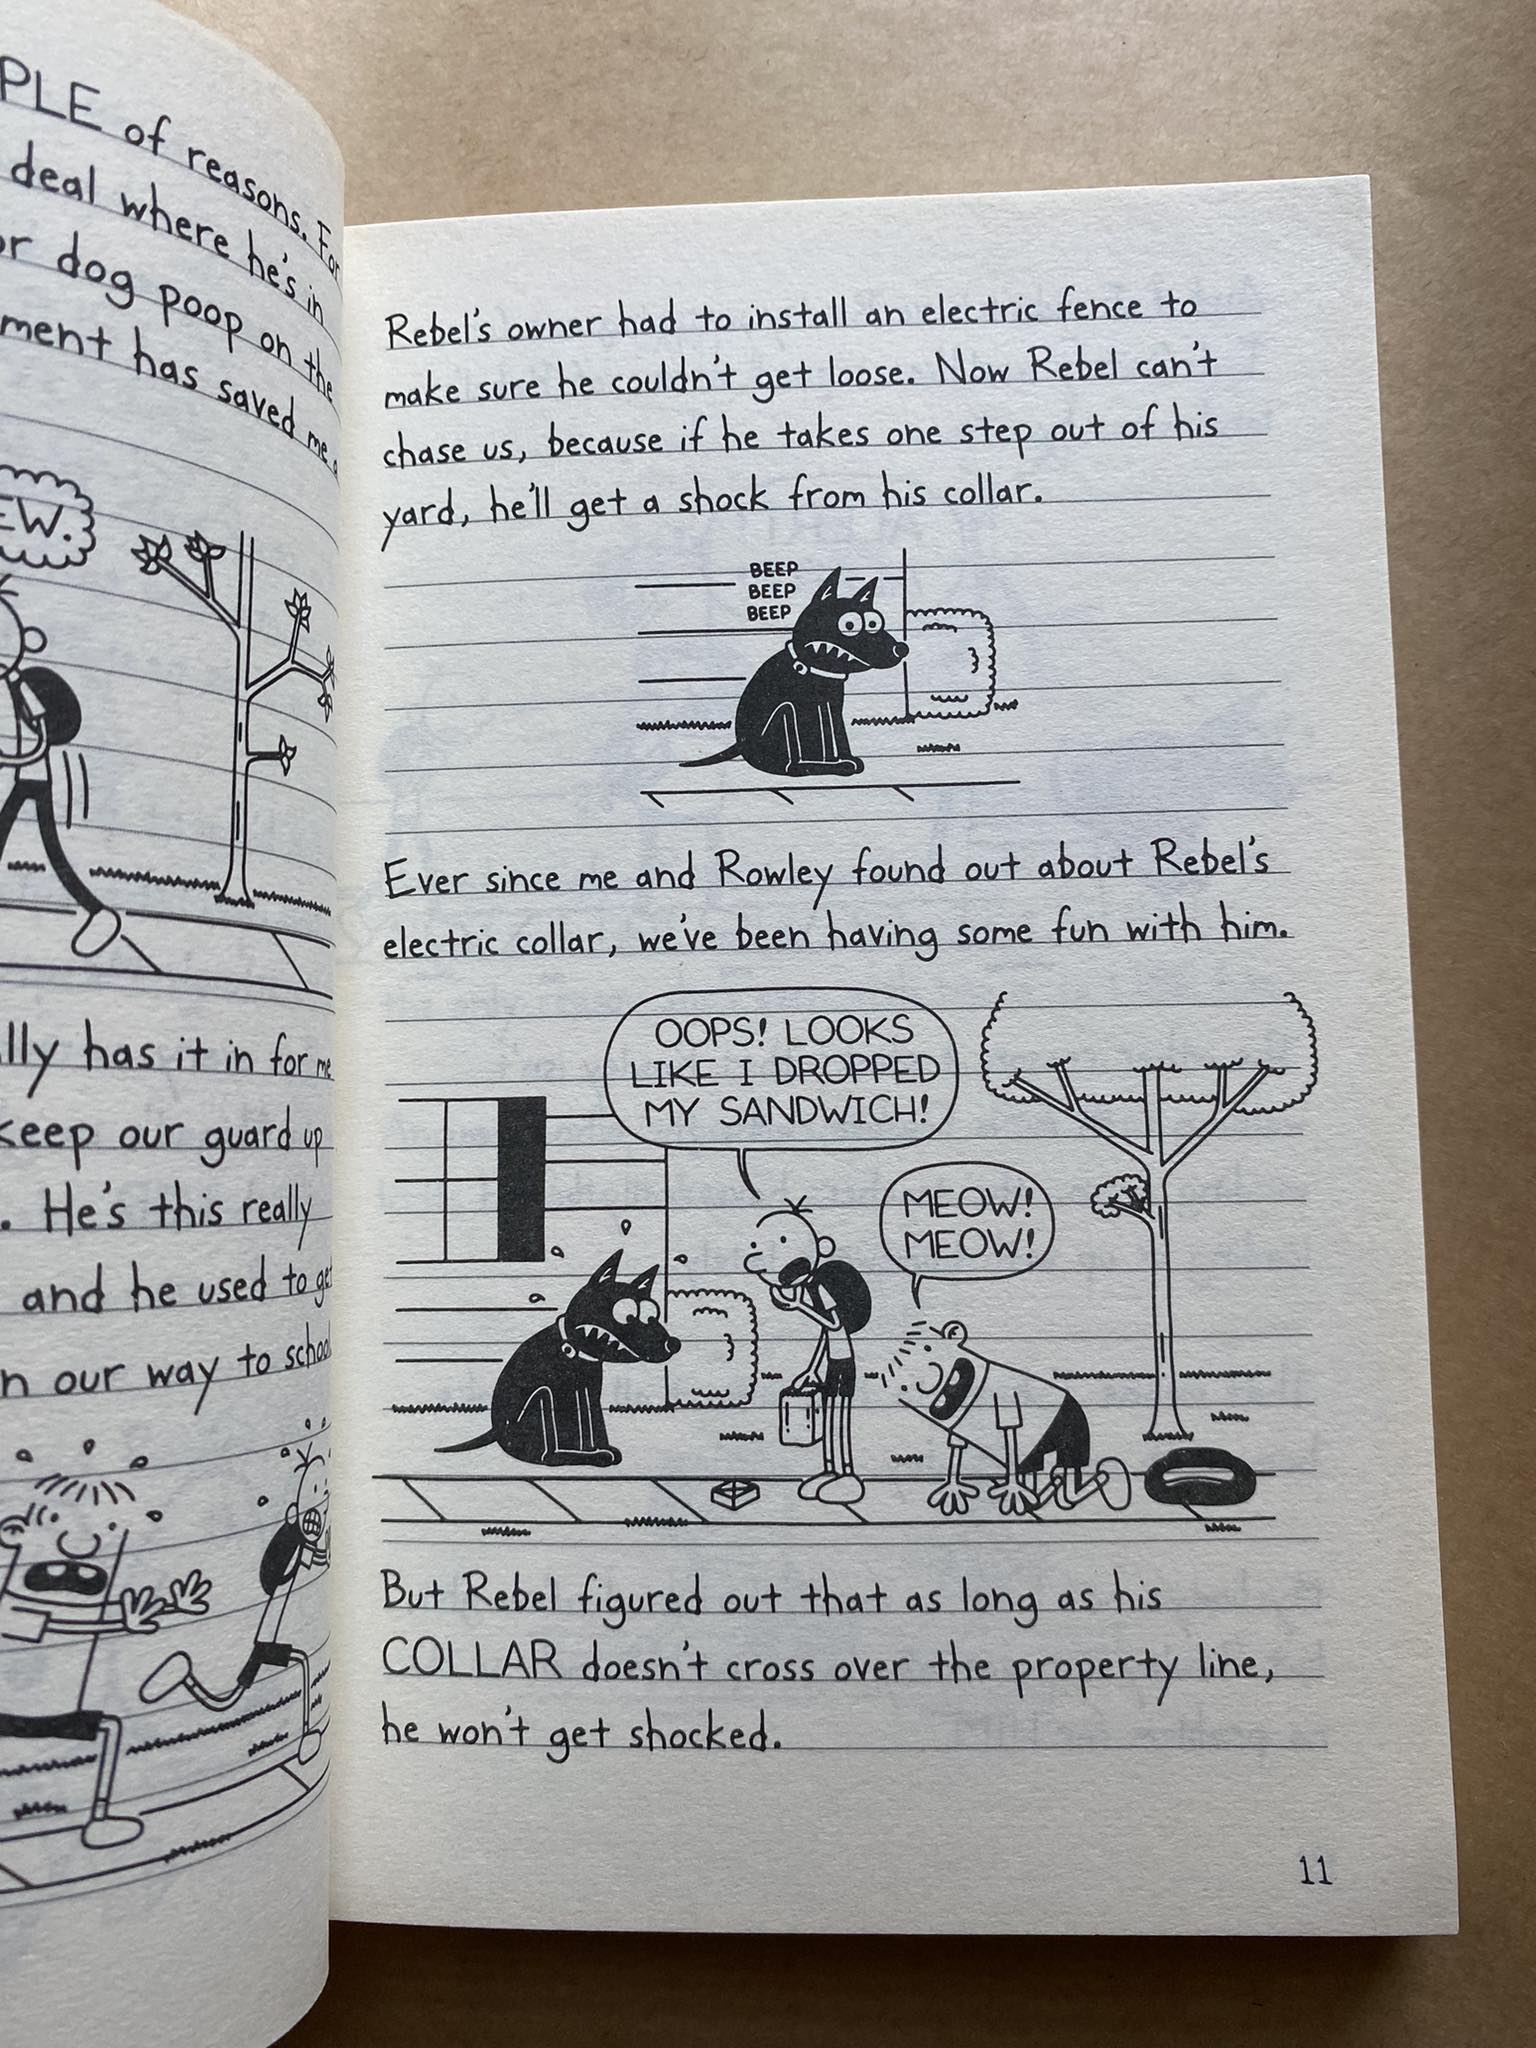 PLE of reasons. For
deal where he's in
or dog poop on the
ment has saved me
EW.
lly has it in for me
keep our guard up
. He's this really
and he used to get
n our way to school
Rebel's owner had to install an electric fence to
make sure he couldn't get loose. Now Rebel can't
chase us, because if he takes one step out of his
yard, he'll get a shock from his collar.
BEEP
BEEP
BEEP
Ever since me and Rowley found out about Rebel's
electric collar, we've been having some fun with him.
OOPS! LOOKS
LIKE I DROPPED
MY SANDWICH!
MEOW!
MEOW!
But Rebel figured out that as long as his
COLLAR doesn't cross over the property line,
he won't get shocked.
11